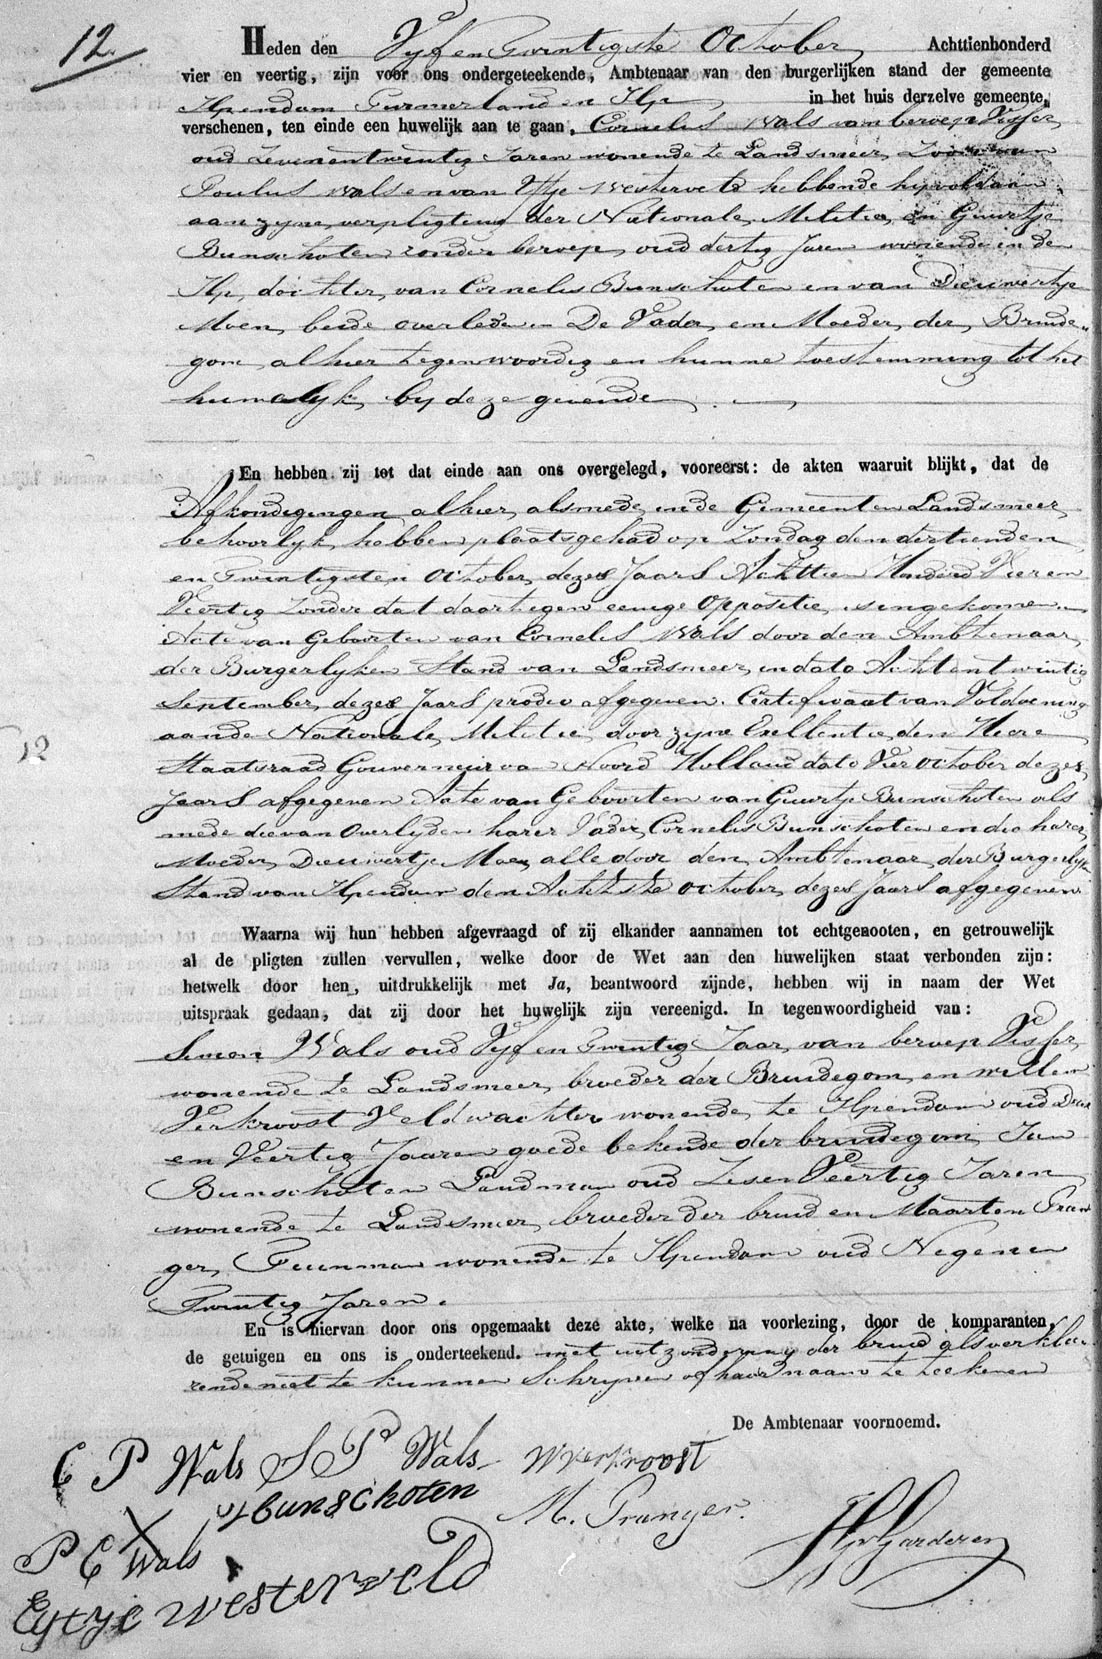 12.
Heden den Vyf en Twintigste October Achttienhonderd
vier en veertig, zijn voor ons ondergeteekende, Ambtenaar van den burgerlijken stand der gemeente
Ilpendam Purmerland en Ilp in het huis derzelve gemeente,
verschenen, ten einde een huwelijk aan te gaan, Cornelis Wals van beroep Visser
oud Zevenentwintig Jaren wonende te Landsmeer, Zoon van
Poulus Wals en van Eytje Westerveld hebbende hy voldaan
aan zyne verpligting der Nationale Militie, en Guurtje
Bunschoten zonder beroep, oud dertig Jaren wonende in de
Ilp, dochter van Cornelis Bunschoten en van Dieuwertje
Moen, beide overleden De Vader en Moeder der Bruide-
gom alhier tegenwoordig en hunne toestemming tot het
huwelyk by deze gevende
En hebben zij tot dat einde aan ons overgelegd, vooreerst: de akten waaruit blijkt, dat de
Afkondigingen alhier, alsmede in de Gemeenten Landsmeer
behoorlyk hebben plaats gehad op Zondag den dertienden
en Twintigsten October dezes Jaars Achttien Honderd Vier en
Veertig Zonder dat daartegen eenige Oppositie is ingekomen
Acte van Geboorten van Cornelis Wals door den Ambtenaar
der Burgerlyken Stand van Landsmeer in dato Achtentwintig
September dezes Jaars prodeo afgegeven. Certificaat van Voldoening
aan de Nationale Militie door zyne Exellentie den Heere
Staatsraad Gouverneur van Noord Holland dato Vier October dezes
Jaars afgegeven Acte van Geboorten van Guurtje Bunschoten als
mede die van Overlyden harer Vader Cornelis Bunschoten en die harer
Moeder Dieuwertje Moen, alle door den Ambtenaar der Burgerlyke
Stand van Ilpendam den Achtste October dezes Jaars afgegeven
Waarna wij hun hebben afgevraagd of zij elkander aannamen tot echtgenooten, en getrouwelijk
al de pligten zullen vervullen, welke door de Wet aan den huwelijken staat verbonden zijn:
hetwelk door hen, uitdrukkelijk met Ja, beantwoord zijnde, hebben wij in naam der Wet
uitspraak gedaan, dat zij door het huwelijk zijn vereenigd. In tegenwoordigheid van:
Simon Wals oud Vyf en Twintig Jaar, van beroep Visser,
wonende te Landsmeer, broeder der Bruidegom en Willem
Verkroost Veldwachter wonende te Ilpendam oud Drie
en Veertig Jaaren goede bekende der bruidegom Jan
Bunschoten Landman oud Zesen Veertig Jaren
wonende te Landsmeer, broeder der bruid en Maarten Pran
ger, Tuinman wonende te Ilpendam oud Negen en
Twintig Jaren.
En is hiervan door ons opgemaakt deze akte, welke na voorlezing, door de komparanten,
de getuigen en ons is onderteekend. met uitzondering der bruid als verkla-
rende niet te kunnen Schryven of haar naam te teekenen
De Ambtenaar voornoemd.
C P Wals S P Wals W Verkroost
J bunschoten M. Pranger.
P C Wals
Eytje westerveld